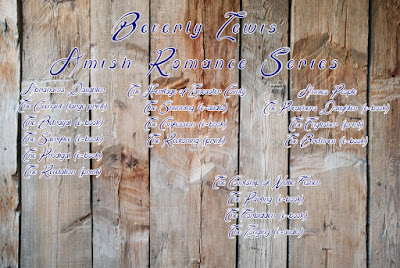 Beverly Lewis
Amish Romance Series
Abraham's Daughters
The Covenant (large print)
The Betrayal (e-book)
The Sacrifice (e-book)
The Prodigal (e-book)
The Revelation (print)
The Heritage of Lancaster County
The Shunning (e-audio)
The Confession (e-book)
The Reckoning (print)
Annie's People
The Preacher's Daughter (e-book)
The Englisher (print)
The Brethren (e-book)
The Courtship of Nellie Fisher
The Parting (e-book)
The Forbidden (e-book)
The Longing (e-audio)